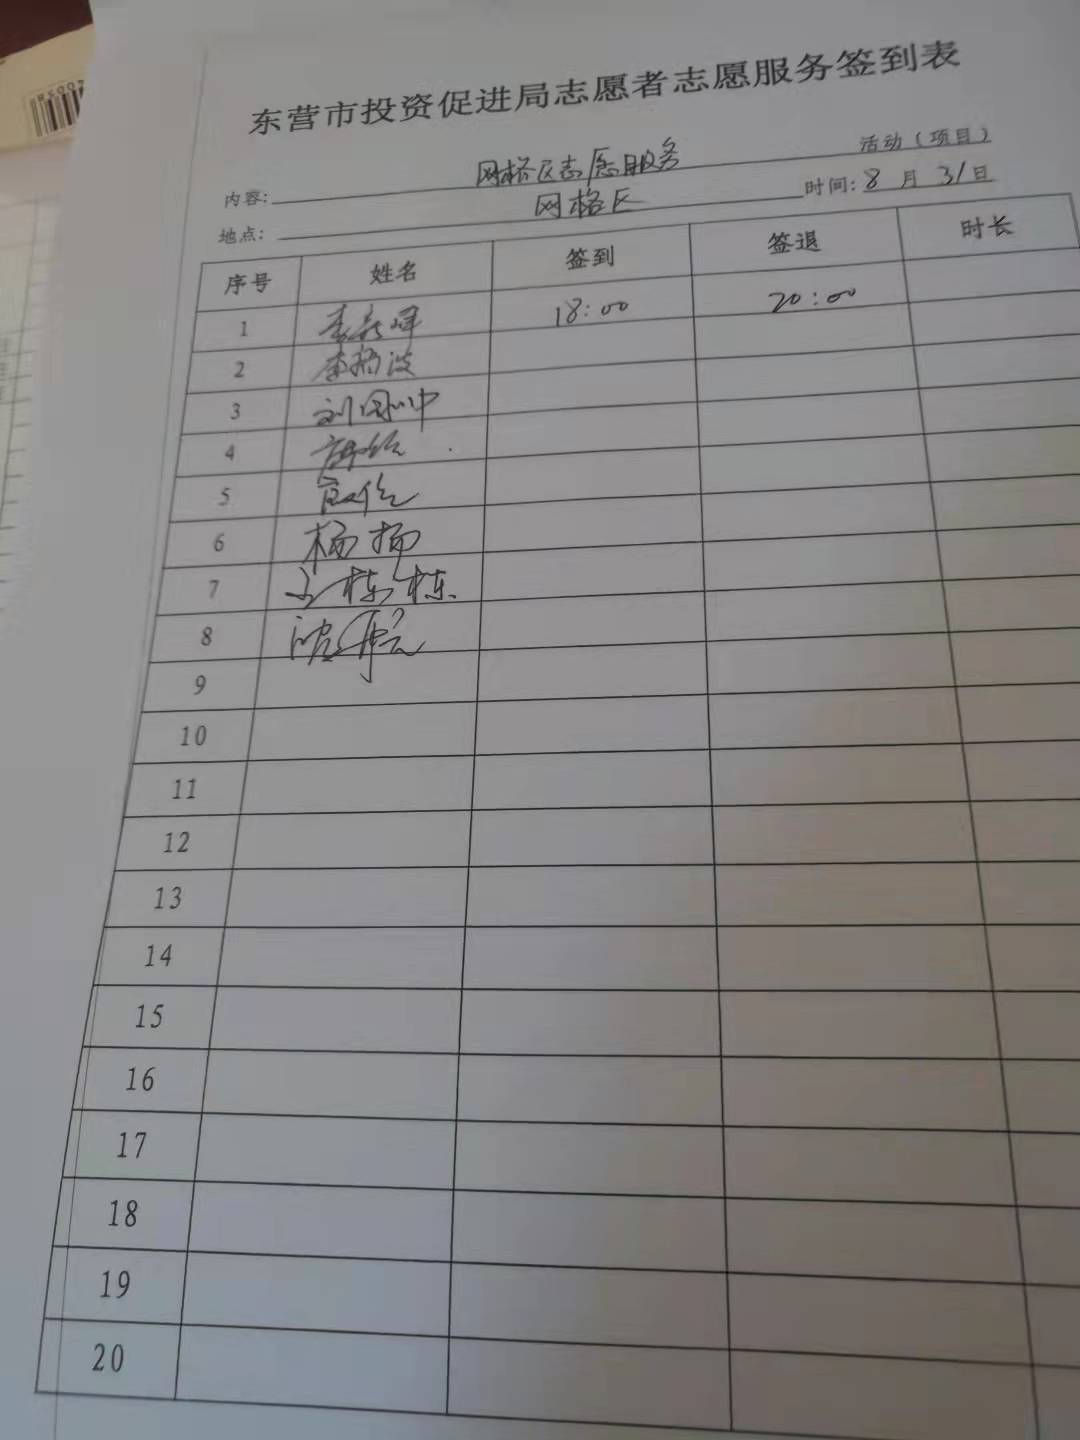 东营市投资促进局志愿者志愿服务签到表
内容: 网格区志愿服务 活动（项目）
地点: 网格区 时间: 8 月 31 日
序号 姓名 签到 签退 时长
1 李 峰 18:00 20:00
2 李 波
3 刘国中
4
5
6 杨扬
7 王栋栋
8 沈
9
10
11
12
13
14
15
16
17
18
19
20